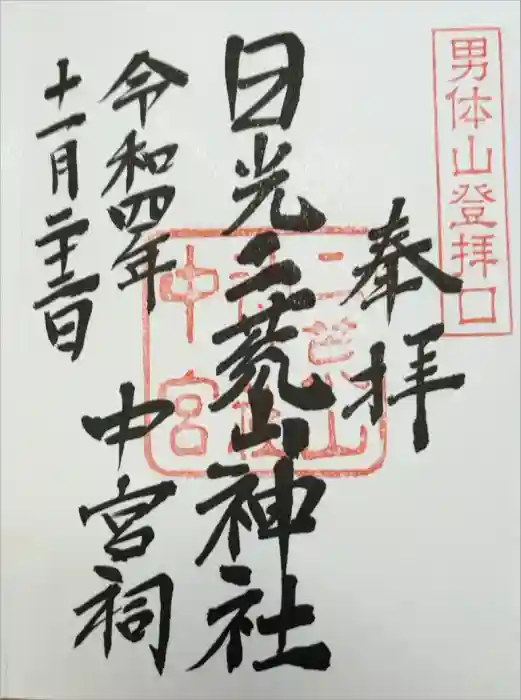 男体山登拝口
奉拝
日光二荒山神社
二荒山
神社
中宮
令和四年
中宮祠
十一月二十三日